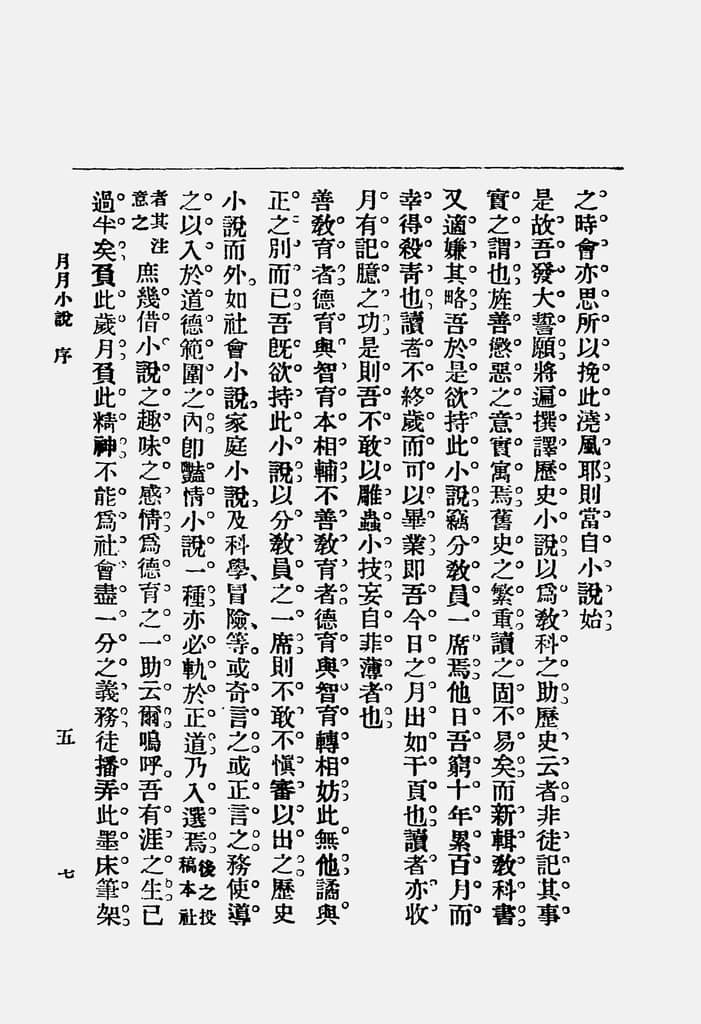 之時會亦思所以挽此澆風耶則當自小說始
是故吾發大誓願將遍撰譯歷史小說以爲敎科之助歷史云者非徒記其事
實之謂也旌善懲惡之意實寓焉舊史之繁重讀之固不易矣而新輯敎科書
又適嫌其略吾於是欲持此小說竊分敎員一席焉他日吾窮十年累百月而
幸得殺靑也讀者不終歲而可以畢業卽吾今日之月出如干頁也讀者亦收
月有記臆之功是則吾不敢以雕蟲小技妄自菲薄者也
善敎育者德育與智育本相輔不善敎育者德育與智育轉相妨此無他譎與
正之別而已吾旣欲持此小說以分敎員之一席則不敢不愼審以出之歷史
小說而外。如社會小說。家庭小說、及科學、冒險、等。或奇言之或正言之務使導
之以入於道德範圍之內卽豔情小說一種亦必軌於正道乃入選焉後之投稿本社
者其注意之庶幾借小說之趣味之感情爲德育之一助云爾嗚呼。吾有涯之生已
過半矣負此歲月負此精神不能爲社會盡一分之義務徒播弄此墨床筆架
月月小說 序
五
七